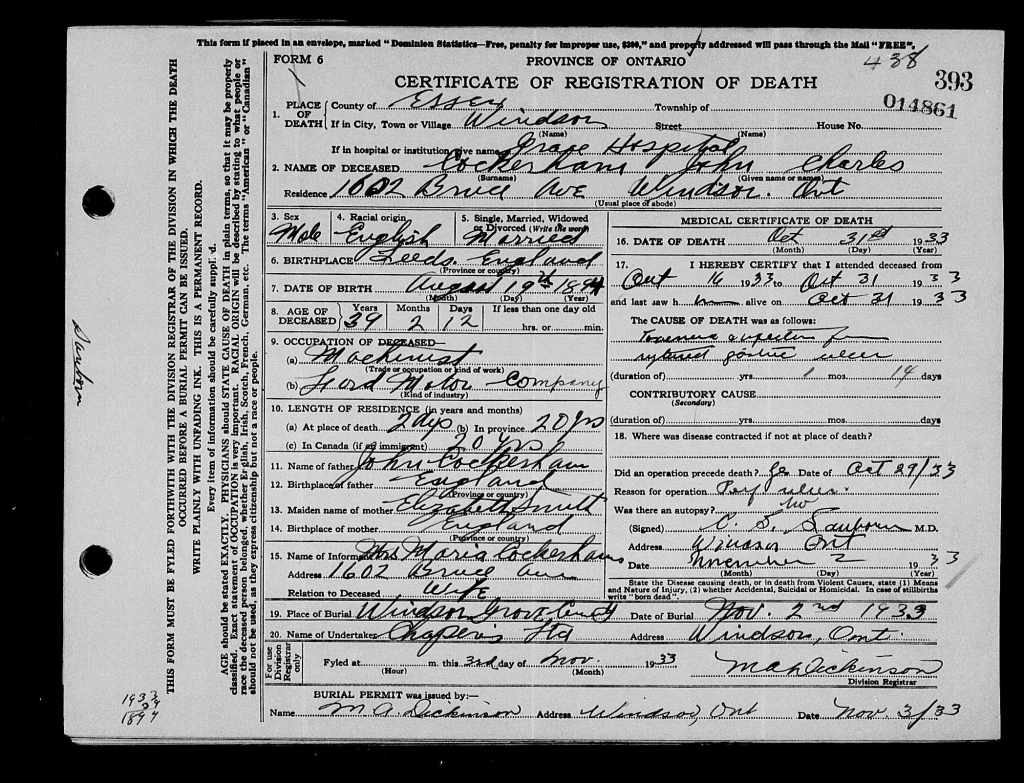 This form if placed in an envelope, marked "Dominion Statistics—Free, penalty for improper use, $300," and properly addressed will pass through the Mail "FREE".
FORM 6
PROVINCE OF ONTARIO
438
CERTIFICATE OF REGISTRATION OF DEATH
393
014861
1. PLACE OF DEATH County of Essex Township of
If in City, Town or Village Windsor Street House No.
(Name) (Name)
If in hospital or institution give name Grace Hospital
2. NAME OF DECEASED Cockerham John Charles
(Surname) (Given name or names)
Residence 1602 Bruce Ave Windsor. Ont
(Usual place of abode)
3. Sex Male
4. Racial origin English
5. Single, Married, Widowed or Divorced (Write the word) Married
6. BIRTHPLACE Leeds. England
(Province or country)
7. DATE OF BIRTH August 19th 1894
(Month) (Day) (Year)
8. AGE OF DECEASED Years 39 Months 2 Days 12 If less than one day old
hrs. or min.
9. OCCUPATION OF DECEASED—
(a) Machinist
(Trade or occupation or kind of work)
(b) Ford Motor Company
(Kind of industry)
10. LENGTH OF RESIDENCE (in years and months)
(a) At place of death 2 dys (b) In province 20 yrs
(c) In Canada (if an immigrant) 20 yrs
11. Name of father John Cockersham
12. Birthplace of father England
(Province or country)
13. Maiden name of mother Elizabeth Smith
14. Birthplace of mother England
(Province or country)
15. Name of Informant Mrs Maria Cockersham
Address 1602 Bruce Ave
Relation to Deceased Wife
MEDICAL CERTIFICATE OF DEATH
16. DATE OF DEATH Oct 31st 1933
(Month) (Day) (Year)
17. I HEREBY CERTIFY that I attended deceased from
Oct 16 1933 to Oct 31 1933
and last saw him alive on Oct 31 1933
The CAUSE OF DEATH was as follows:
ruptured gastric ulcer
(duration of) yrs. mos. 14 days
CONTRIBUTORY CAUSE
(Secondary)
(duration of) yrs. mos. days
18. Where was disease contracted if not at place of death?
Did an operation precede death? yes Date of Oct 29/33
Reason for operation Perf ulcer.
Was there an autopsy? no
(Signed) M.D.
Address Windsor Ont
Date November 2 1933
(Month) (Day) (Year)
State the Disease causing death, or in death from Violent Causes, state (1) Means and Nature of Injury, (2) whether Accidental, Suicidal or Homicidal. In case of stillbirths write "born dead".
19. Place of Burial Windsor Grove Cemty Date of Burial Nov. 2nd 1933
20. Name of Undertaker Ltd Address Windsor, Ont.
For use Division Registrar only
Fyled at m. this 3rd day of Nov. 1933
(Hour) (Month)
M A Dickinson
Division Registrar
BURIAL PERMIT was issued by:—
Name M A Dickinson Address Windsor, Ont Date Nov. 3/33
THIS FORM MUST BE FYLED FORTHWITH WITH THE DIVISION REGISTRAR OF THE DIVISION IN WHICH THE DEATH
OCCURRED BEFORE A BURIAL PERMIT CAN BE ISSUED.
WRITE PLAINLY WITH UNFADING INK. THIS IS A PERMANENT RECORD.
Every item of information should be carefully supplied.
AGE should be stated EXACTLY. PHYSICIANS should STATE CAUSE OF DEATH in plain terms, so that it may be properly
classified. Exact statement of OCCUPATION is very important. RACIAL ORIGIN will be described by stating to what people or
race the deceased person belonged, whether English, Irish, Scotch, French, German, etc. The terms "American" or "Canadian"
should not be used, as they express citizenship but not a race or people.
1933
39
1894